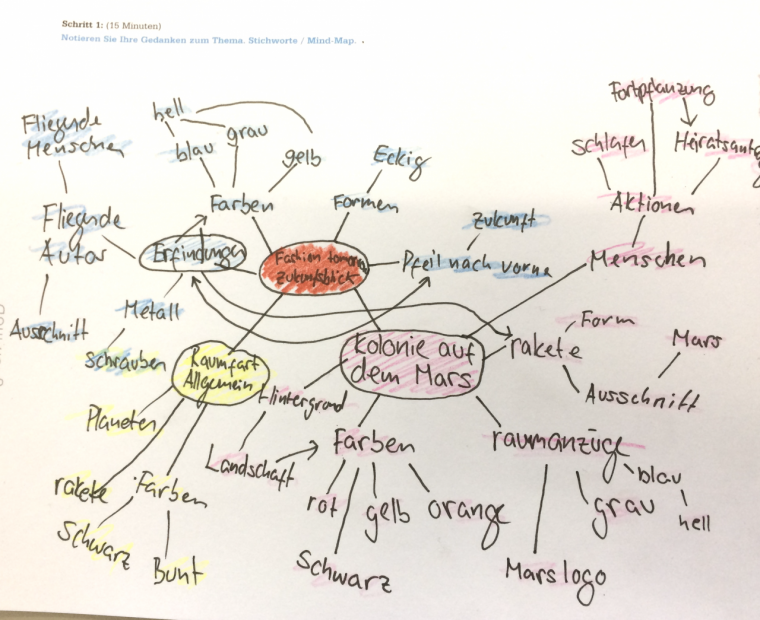 Schritt 1: (15 Minuten)
Notieren Sie Ihre Gedanken zum Thema. Stichworte / Mind-Map.
Fortpflanzung
hell
Fliegende
Menschen
grau
blau
gelb
Schlafen
Eckig
Farben
Formen
Aktionen
Fliegende
Autos
Zukunft
Erfindung
Fashion
Zukunftsblick
Pfeil nach vorne
Menschen
Metall
Form
Ausschnitt
Mars
Schrauben
Raumfart
Allgemein
Kolonie auf
dem Mars
rakete
Hintergrund
Ausschnitt
Planeten
Landschaft
Farben
raumanzüge
rakete
Farben
blau
rot
gelb
orange
grau
hell
Schwarz
Bunt
Schwarz
Mars logo